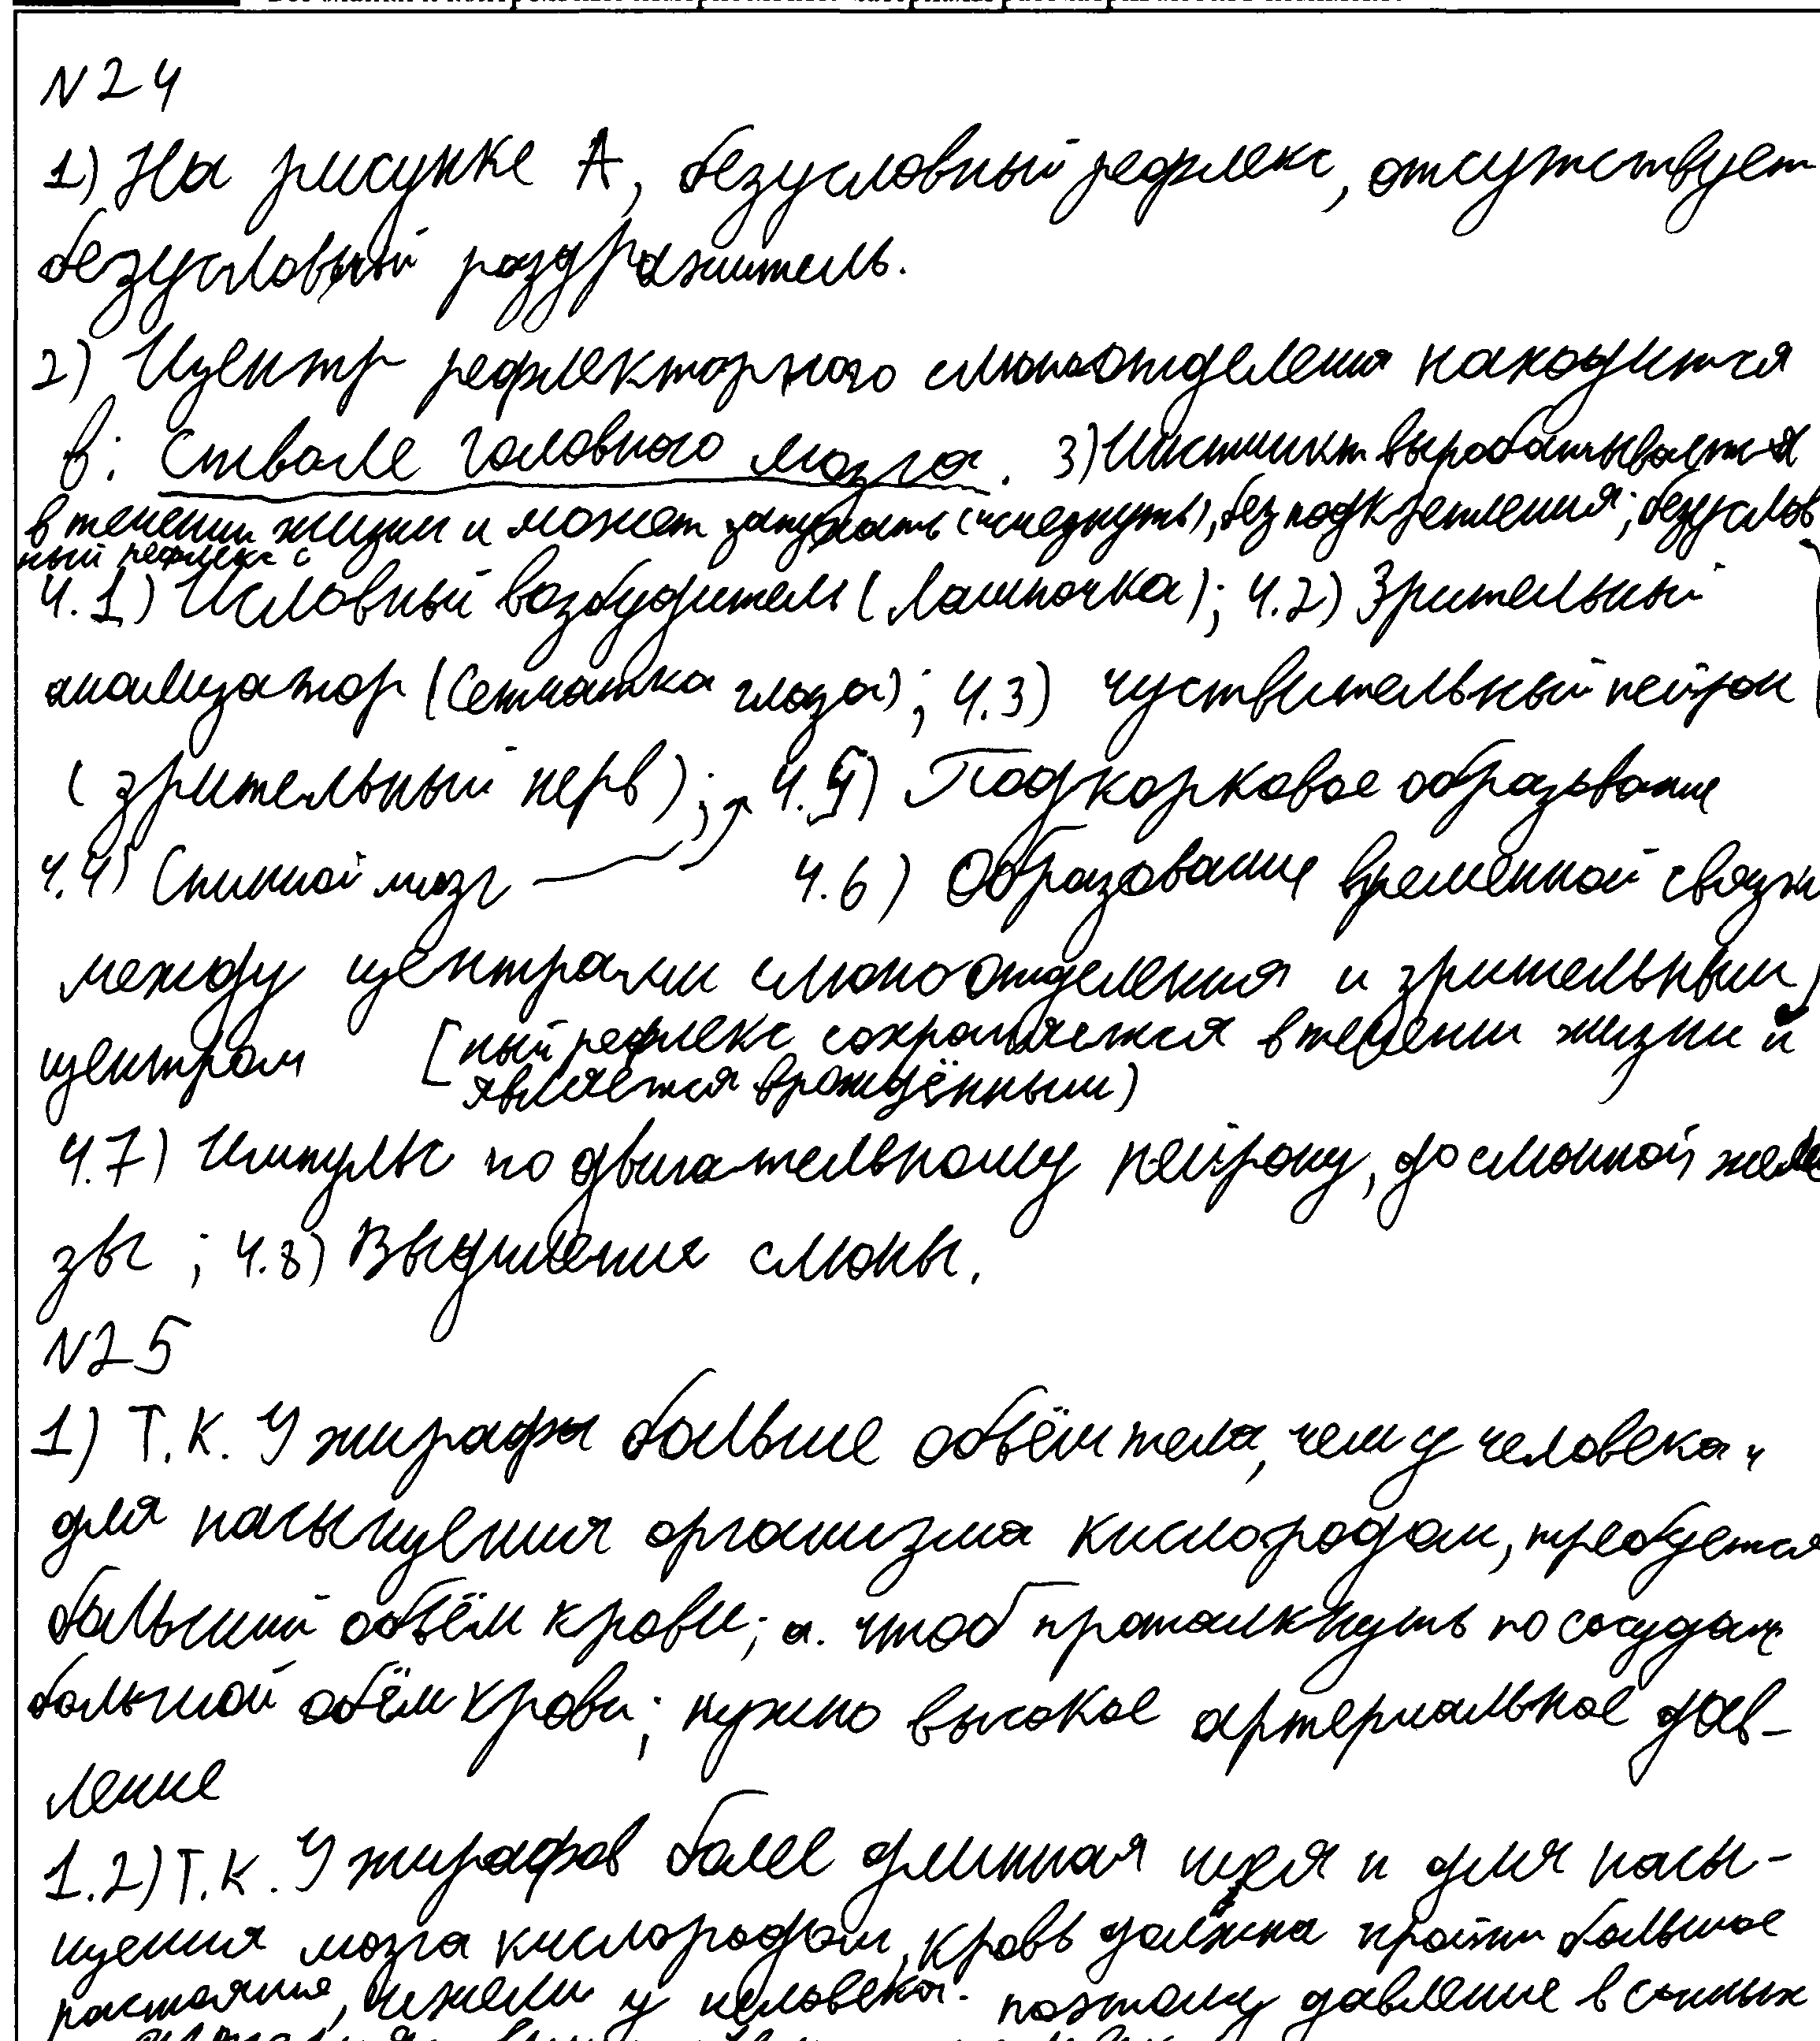 N24
1) На рисунке А, безусловный рефлекс, отсутствует
безусловный раздражитель.
2) Центр рефлекторного слюноотделения находится
в: Стволе головного мозга. 3) Инстинкт вырабатывается
в течении жизни и может затухать (исчезнуть), без подкрепления; безуслов
ный рефлекс с
4.1) Условный возбудитель (Лампочка); 4.2) Зрительный
анализатор (Сетчатка глаза); 4.3) чуствительный нейрон
(зрительный нерв); 4.5) Подкорковое образование
4.4) Спинной мозг 4.6) Образование временной связи
между центрами слюноотделения и зрительным
центром [ный рефлекс сохраняется в течении жизни и
является врождённым)
4.7) Импульс по двигательному нейрону, до слюнной желе
зы ; 4.8) Выделение слюны.
N25
1) Т.К. У жирафа больше объём тела, чем у человека и
для насыщения организма кислородом, требуется
больший объём крови; а чтоб протолкнуть по сосудам
большой обём крови; нужно высокое артериальное дав-
ление
1.2) Т.К. У жирафов более длинная шея и для насы-
щения мозга кислородом, кровь должна пройти большое
растояние, нежели у человека. поэтому давление в сонных